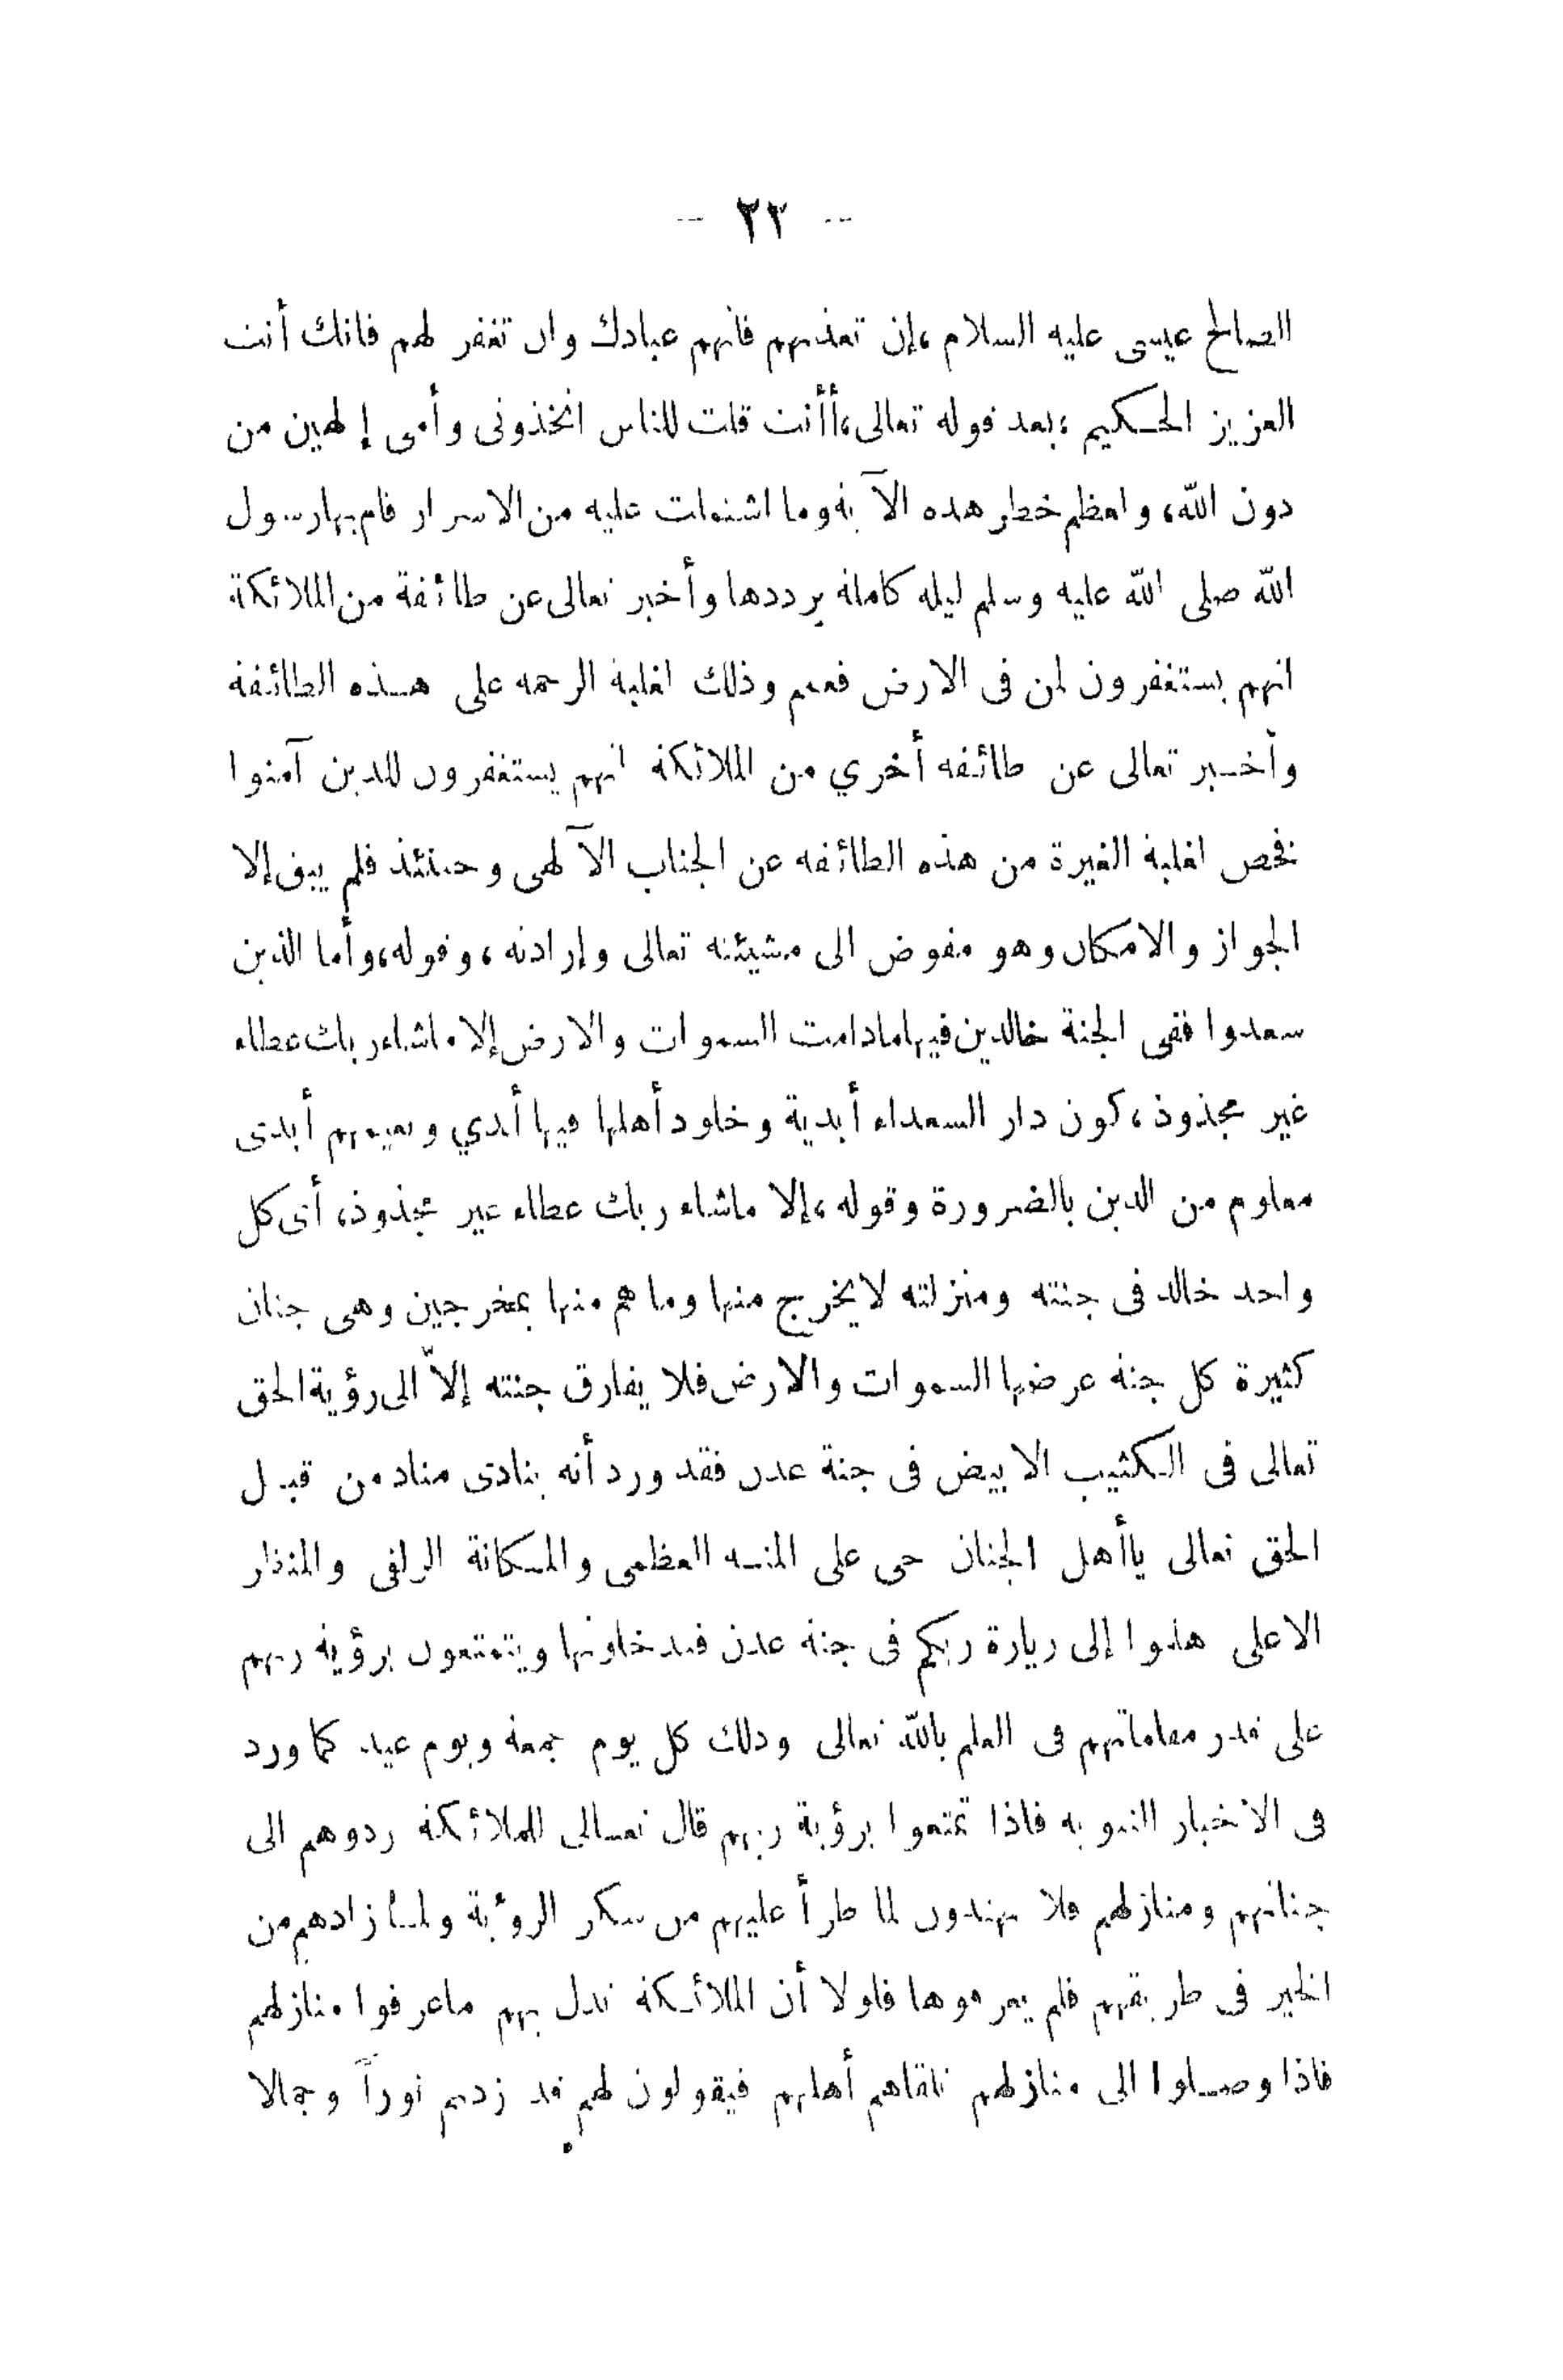 -- ٢٢ --
الصالح عيسى عليه السلام ،إن تعذبهم فانهم عبادك وان تغفر لهم فانك أنت
العزيز الحكيم ،بعد قوله تعالى،أأنت قلت للناس اتخذونى وأمى إلهين من
دون الله، ولعظم خطر هذه الآية وما اشتملت عليه من الاسرار قام بها رسول
الله صلى الله عليه وسلم ليله كاملة يرددها وأخبر تعالى عن طائفة من الملائكة
انهم يستغفرون لمن فى الارض فعمم وذلك لغلبة الرحمه على هذه الطائفة
وأخبر تعالى عن طائفه أخري من الملائكة انهم يستغفرون للذين آمنوا
فخص لغلبة الغيرة من هذه الطائفه عن الجناب الآلهى وحينئذ فلم يبق إلا
الجواز والامكان وهو مفوض الى مشيئته تعالى وإرادته ، وقوله،وأما الذين
سعدوا ففى الجنة خالدين فيها مادامت السموات والارض إلا ماشاء ربك عطاء
غير مجذوذ ، كون دار السعداء أبدية وخلود أهلها فيها أبدي ونعيمهم أبدى
معلوم من الدين بالضرورة وقوله ،إلا ماشاء ربك عطاء غير مجذوذ، أى كل
واحد خالد فى جنته ومنزلته لايخرج منها وما هم منها بمخرجين وهى جنان
كثيرة كل جنة عرضها السموات والارض فلا يفارق جنته إلاّ الى رؤية الحق
تعالى فى الكثيب الابيض فى جنة عدن فقد ورد أنه ينادى مناد من قبل
الحق تعالى ياأهل الجنان حى على المنه العظمى والمكانة الزلفى والمنظر
الاعلى هلموا إلى زيارة ربكم فى جنة عدن فيدخلونها ويتمتعون برؤية ربهم
على قدر مقاماتهم فى العلم بالله تعالى وذلك كل يوم جمعة ويوم عيد كما ورد
فى الاخبار النبويه فاذا تمتعوا برؤية ربهم قال تعالى للملائكة ردوهم الى
جنانهم ومنازلهم فلا يهتدون لما طرأ عليهم من سكر الرؤية ولما زادهم من
الخير فى طريقهم فلم يعرفوها فلولا أن الملائكة تدل بهم ماعرفوا منازلهم
فاذا وصلوا الى منازلهم تلقاهم أهلهم فيقولون لهم قد زدتم نوراً وجمالا